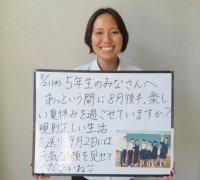 8/21(月) 5年生のみなさんへ
あっという間に8月後半、楽し
い夏休みを過ごせていますか?
規則正しい生活
を送り、9月2日には
元気な顔を見せて
くださいね